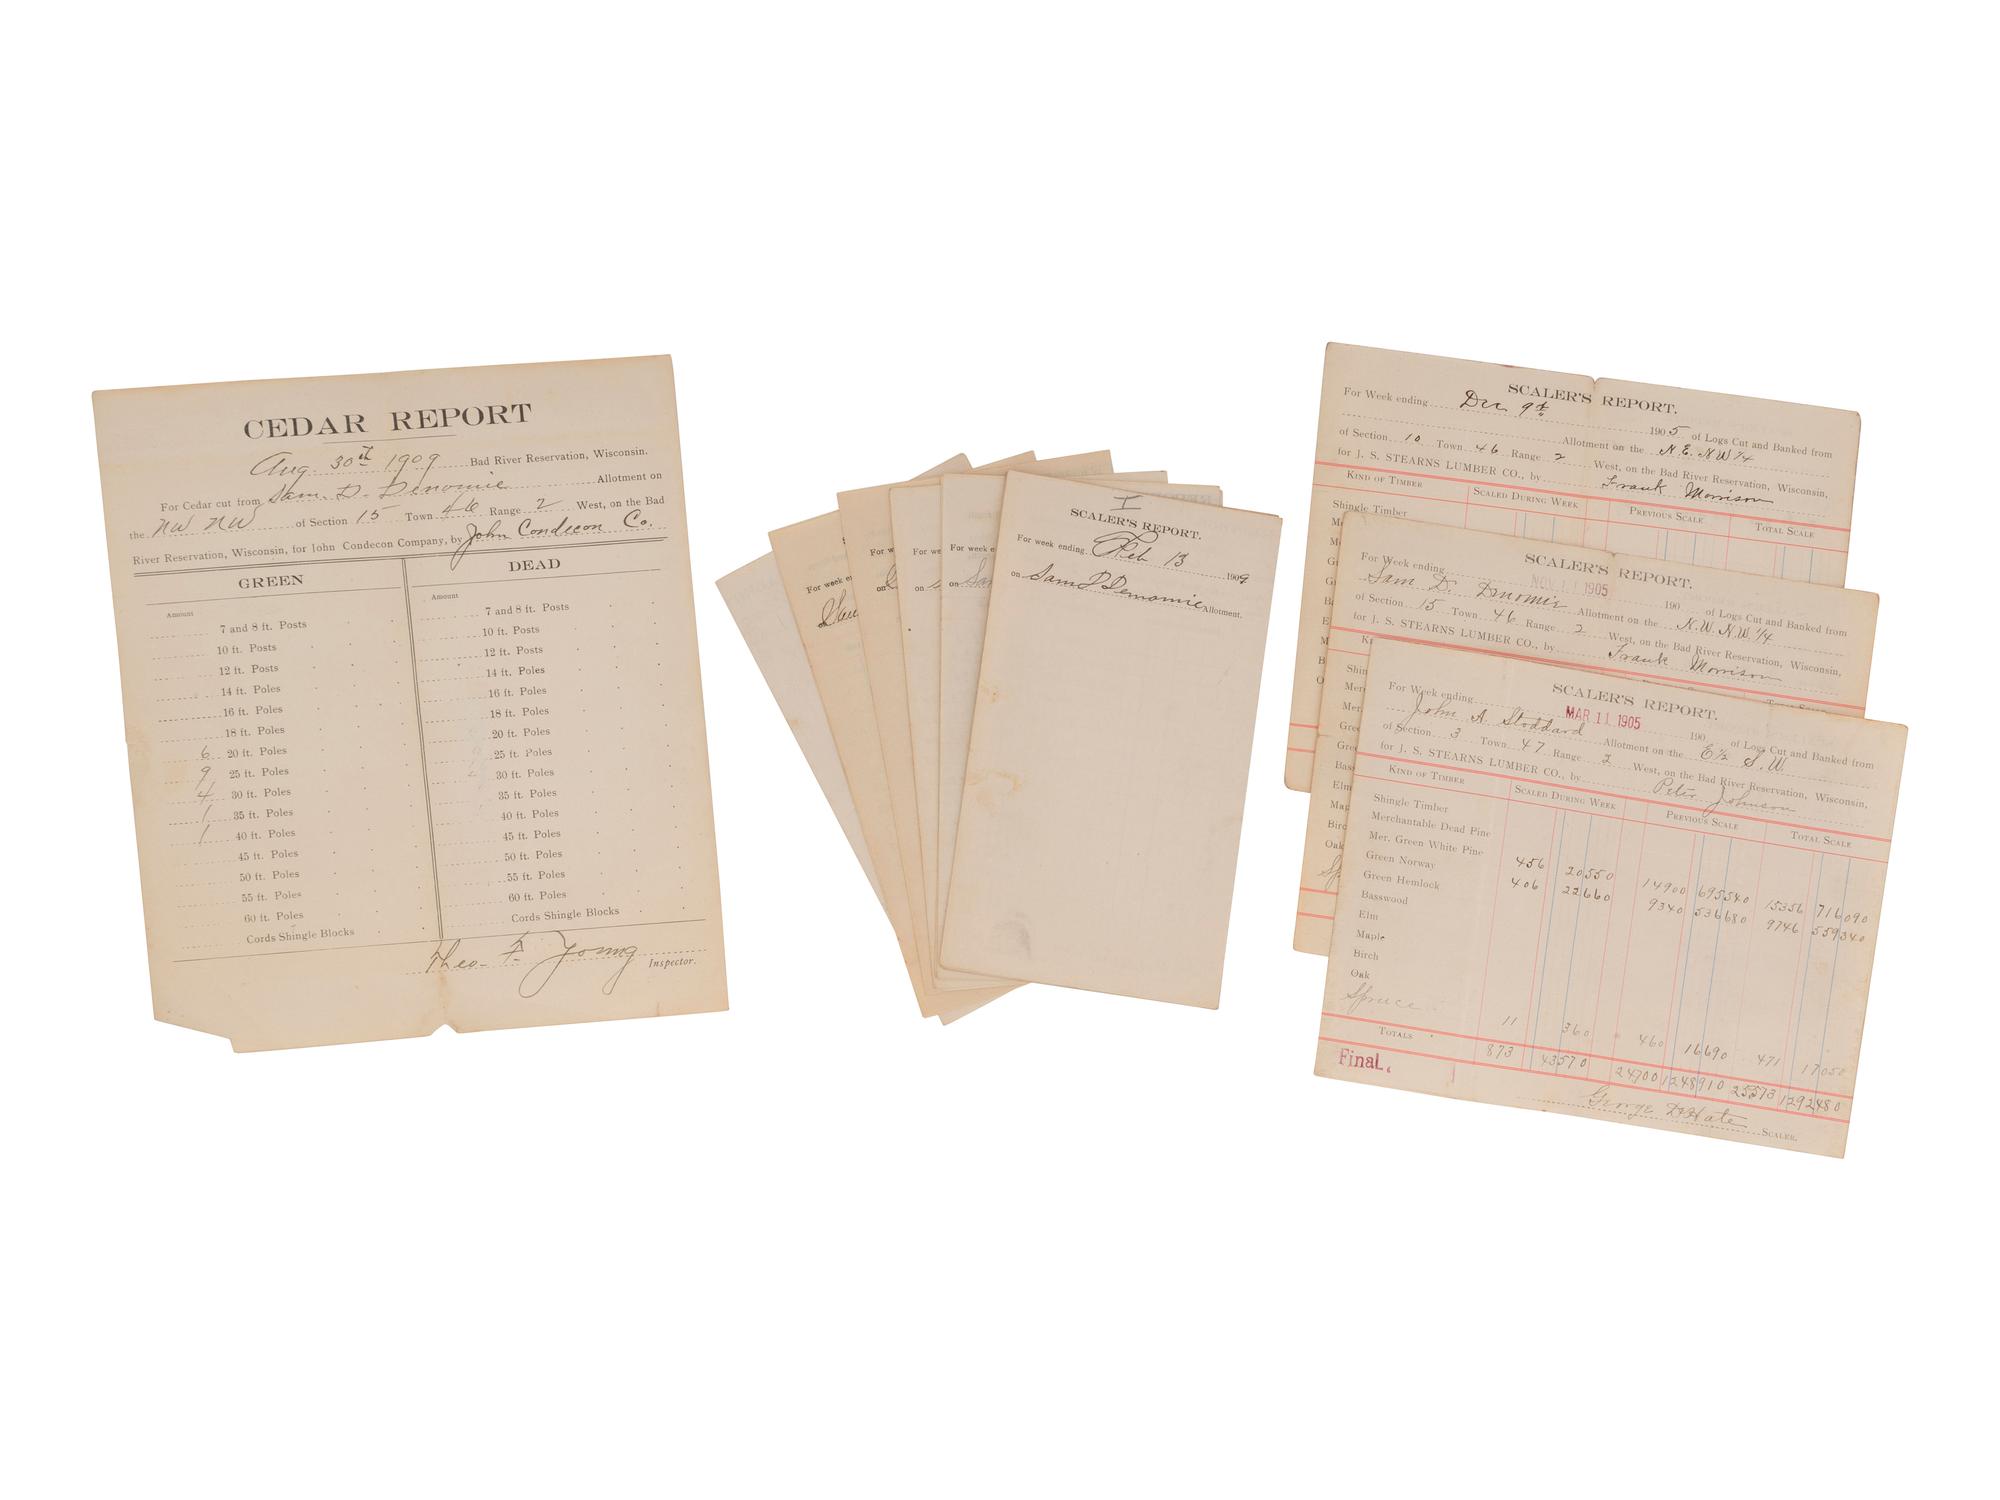 CEDAR REPORT
Aug. 30th 1909 Bad River Reservation, Wisconsin.
For Cedar cut from Sam. D. Denomie Allotment on
the NW NW of Section 15 Town 46 Range 2 West, on the Bad
River Reservation, Wisconsin, for John Condecon Company, by John Condecon Co.
GREEN
Amount
7 and 8 ft. Posts
10 ft. Posts
12 ft. Posts
14 ft. Poles
16 ft. Poles
18 ft. Poles
6 20 ft. Poles
9 25 ft. Poles
4 30 ft. Poles
1 35 ft. Poles
1 40 ft. Poles
45 ft. Poles
50 ft. Poles
55 ft. Poles
60 ft. Poles
Cords Shingle Blocks
DEAD
Amount
7 and 8 ft. Posts
10 ft. Posts
12 ft. Posts
14 ft. Poles
16 ft. Poles
18 ft. Poles
20 ft. Poles
25 ft. Poles
30 ft. Poles
35 ft. Poles
40 ft. Poles
45 ft. Poles
50 ft. Poles
55 ft. Poles
60 ft. Poles
Cords Shingle Blocks
Theo. F. Young Inspector.
For week e
For w
on
For we
on
For week e
on Sa
I
SCALER'S REPORT.
For week ending Feb 13 1909
on Sam D Denomie Allotment.
SCALER'S REPORT.
For Week ending Dec 9th 1905 of Logs Cut and Banked from
Allotment on the N.E. NW 1/4
of Section 10 Town 46 Range 2 West, on the Bad River Reservation, Wisconsin,
for J. S. STEARNS LUMBER CO., by Frank Morrison
KIND OF TIMBER SCALED DURING WEEK PREVIOUS SCALE TOTAL SCALE
Shingle Timber
SCALER'S REPORT.
For Week ending NOV 11 1905 190 of Logs Cut and Banked from
Sam D. Denomie Allotment on the N.W. N.W. 1/4
of Section 15 Town 46 Range 2 West, on the Bad River Reservation, Wisconsin,
for J. S. STEARNS LUMBER CO., by Frank Morrison
SCALER'S REPORT.
For Week ending MAR 11 1905 190 of Logs Cut and Banked from
John A Stoddard Allotment on the E½ S.W.
of Section 3 Town 47 Range 2 West, on the Bad River Reservation, Wisconsin,
for J. S. STEARNS LUMBER CO., by Peter Johnson
KIND OF TIMBER SCALED DURING WEEK PREVIOUS SCALE TOTAL SCALE
Shingle Timber
Merchantable Dead Pine
Mer. Green White Pine 456 20550 14900 695540 15356 716090
Green Norway 406 22660 9340 536680 9746 559340
Green Hemlock
Basswood
Elm
Maple
Birch
Oak
Spruce 11 360 460 16690 471 17050
TOTALS 873 43570 24700 1248910 25573 1292480
Final.
George SCALER.